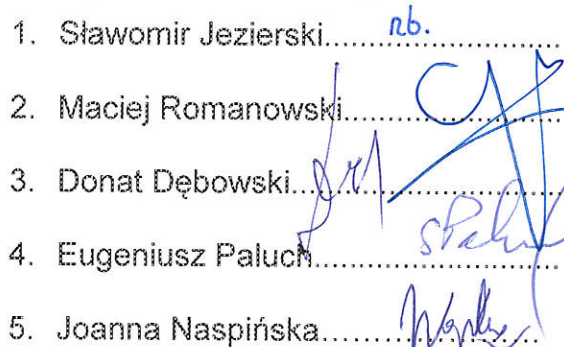 1. Sławomir Jezierski............nb.....................
2. Maciej Romanowski.....................................
3. Donat Dębowski.....................................
4. Eugeniusz Paluch.....................................
5. Joanna Naspińska.....................................